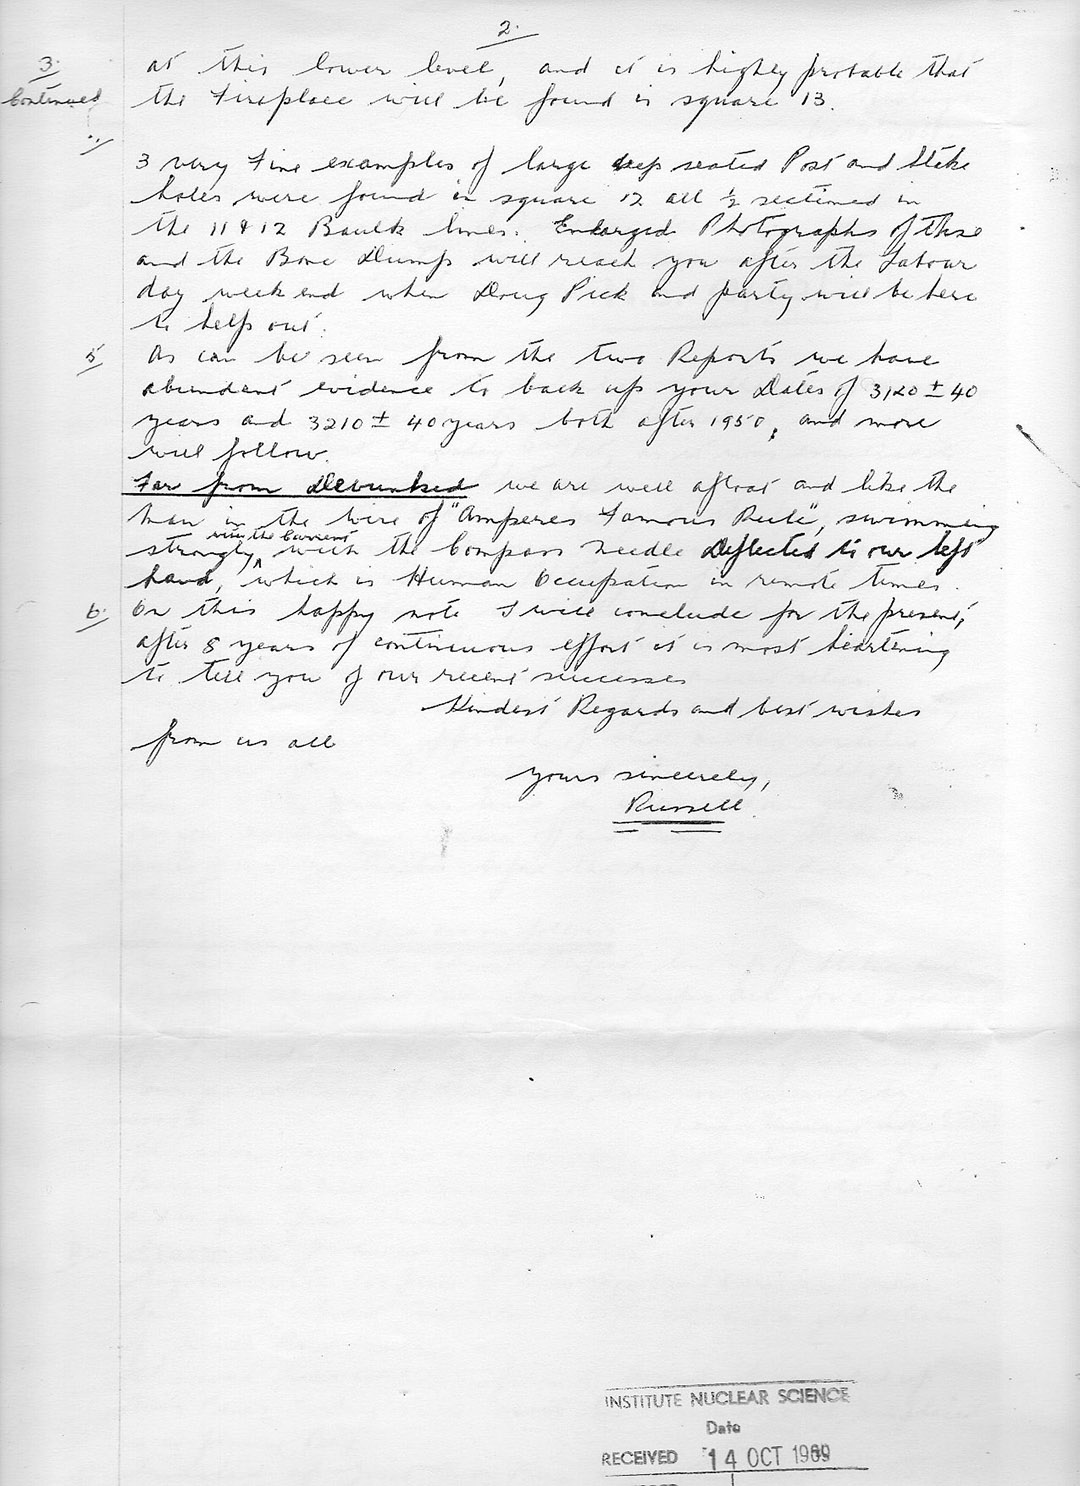 2.
3. at this lower level, and it is highly probable that
Continued the Fireplace will be found in square 13.
3 very Fine examples of large deep seated Post and Stake
holes were found in square 12 all ½ sectioned in
the 11 & 12 Baulk lines. Enlarged Photographs of these
and the Bone Dumps will reach you after the Labour
day week end when Doug Pick and party will be here
to help out.
5 As can be seen from the two Reports we have
abundant evidence to back up your Dates of 3120 ± 40
years and 3210 ± 40 years both after 1950, and more
will follow.
Far from Devunked we are well afloat and like the
man in the wire of "Amperes Famous Rule", swimming
with the Current
strongly, with the Compass needle Deflected to our left
hand, which is Human Occupation in remote times.
6. On this happy note I will conclude for the present,
after 8 years of continuous effort it is most heartening
to tell you of our recent successes
Kindest Regards and best wishes
from us all
Yours sincerely,
Russell.
INSTITUTE NUCLEAR SCIENCE
Date
RECEIVED 14 OCT 1969